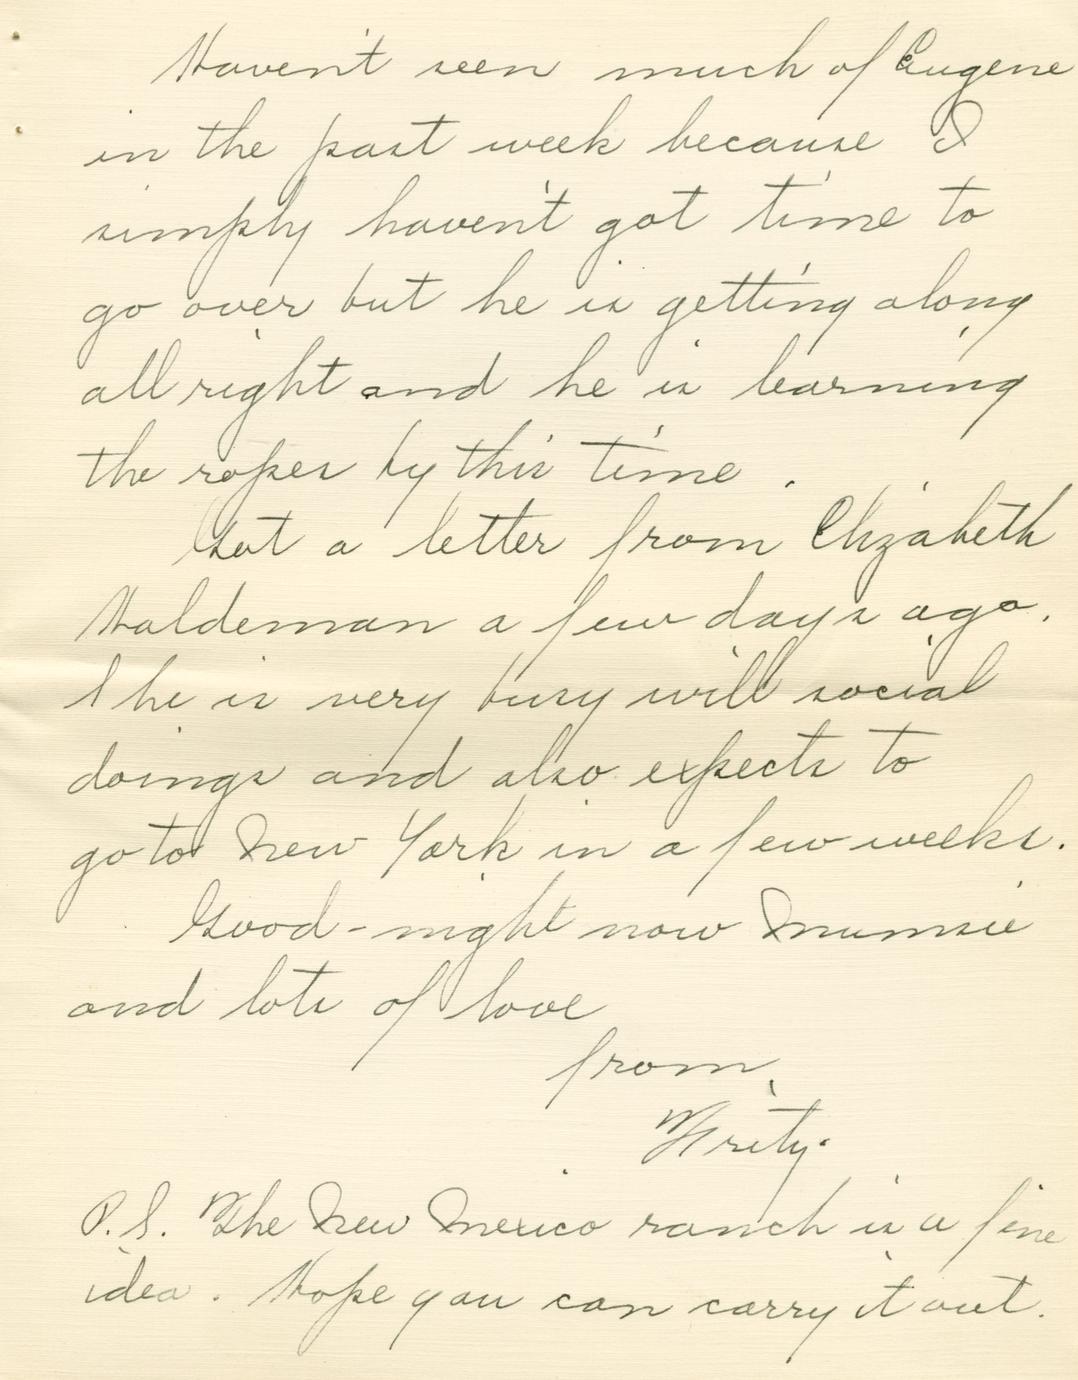 Haven't seen much of Eugene
in the past week because I
simply haven't got time to
go over but he is getting along
all right and he is learning
the ropes by this time.
Got a letter from Elizabeth
Haldeman a few days ago.
She is very busy will social
doings and also expects to
go to New York in a few weeks.
Good-night now Mumsie
and lots of love
from,
Fritz.
P.S. The New Mexico ranch is a fine
idea. Hope you can carry it out.